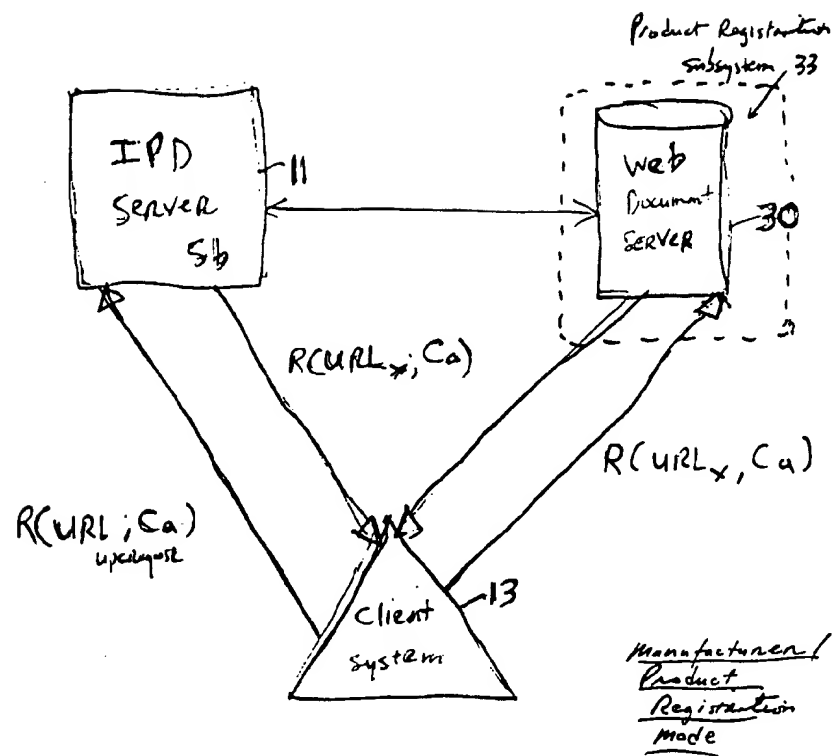 Product Registration
Subsystem 33
IPD
SERVER
5b
11
Web
Document
SERVER
30
R(URL*; Ca)
R(URLx, Ca)
R(URL; Ca)
Client
System
13
Manufacturer/
Product
Registration
Mode